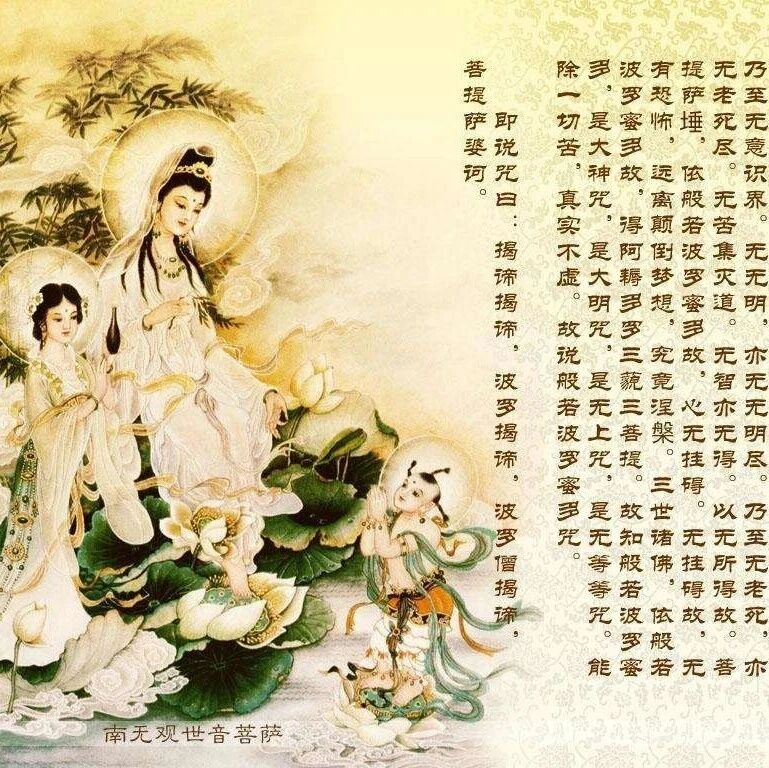 乃至无意识界。无无明，亦无无明尽。乃至无老死，亦
无老死尽。无苦集灭道。无智亦无得。以无所得故。菩
提萨埵，依般若波罗蜜多故，心无挂碍。无挂碍故，无
有恐怖，远离颠倒梦想，究竟涅槃。三世诸佛，依般若
波罗蜜多故，得阿耨多罗三藐三菩提。故知般若波罗蜜
多，是大神咒，是大明咒，是无上咒，是无等等咒。能
除一切苦，真实不虚。故说般若波罗蜜多咒。
即说咒曰：揭谛揭谛，波罗揭谛，波罗僧揭谛，
菩提萨婆诃。
南无观世音菩萨